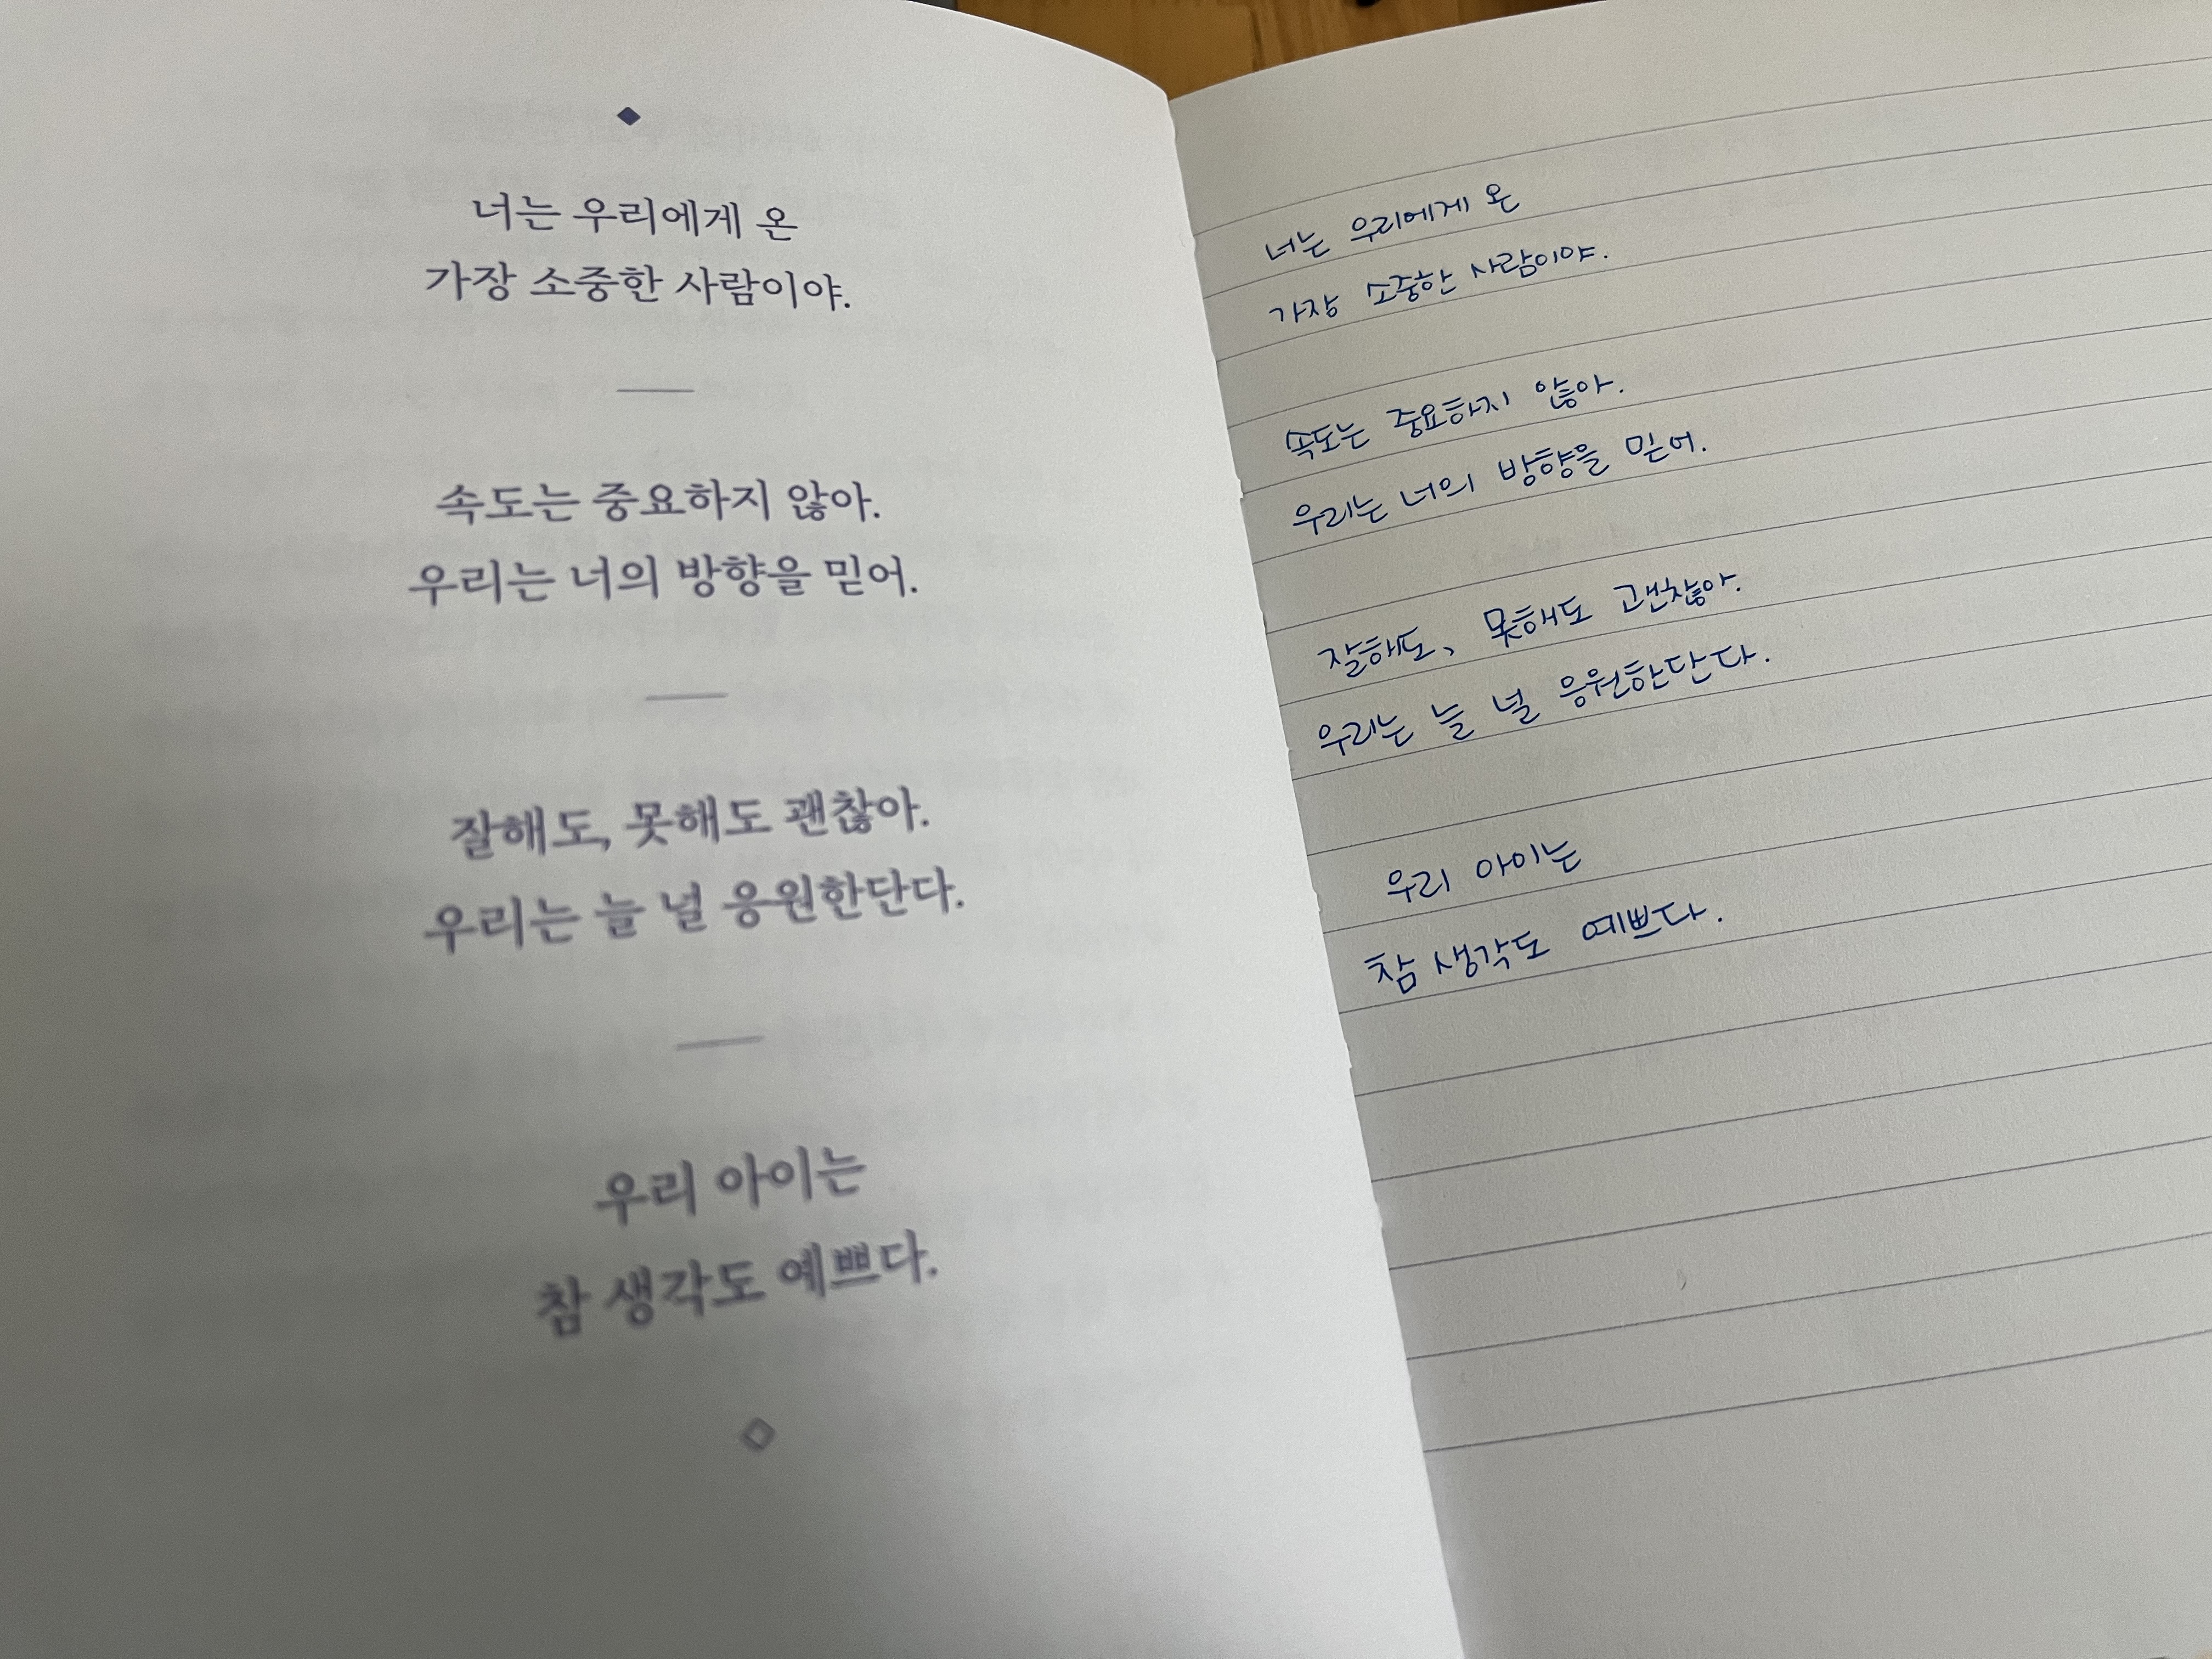 너는 우리에게 온
가장 소중한 사람이야.
속도는 중요하지 않아.
우리는 너의 방향을 믿어.
잘해도, 못해도 괜찮아.
우리는 늘 널 응원한단다.
우리 아이는
참 생각도 예쁘다.
너는 우리에게 온
가장 소중한 사람이야.
속도는 중요하지 않아.
우리는 너의 방향을 믿어.
잘해도, 못해도 괜찮아.
우리는 늘 널 응원한단다.
우리 아이는
참 생각도 예쁘다.